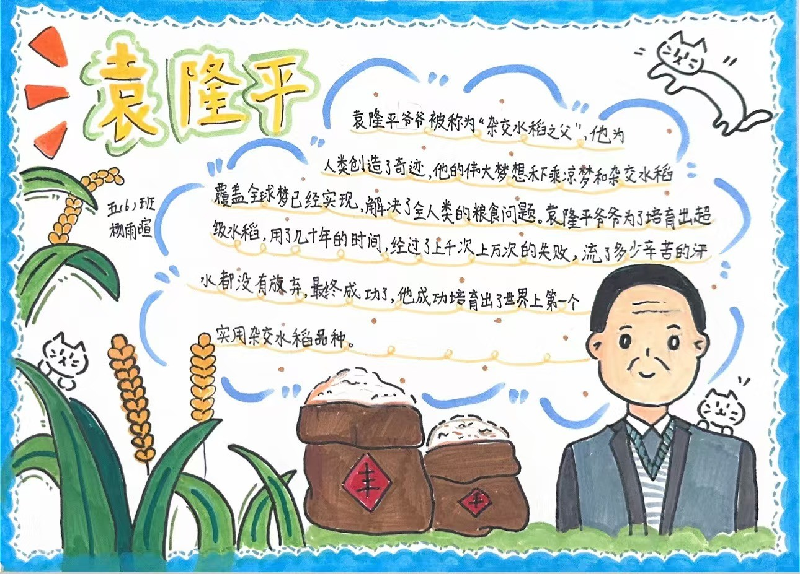 袁隆平
五(6)班
杨雨暄
袁隆平爷爷被称为“杂交水稻之父”,他为
人类创造了奇迹,他的伟大梦想禾下乘凉梦和杂交水稻
覆盖全球梦已经实现,解决了全人类的粮食问题。袁隆平爷爷为了培育出超
级水稻,用了几十年的时间,经过了上千次上万次的失败,流了多少辛苦的汗
水都没有放弃,最终成功了,他成功培育出了世界上第一个
实用杂交水稻品种。
丰
丰